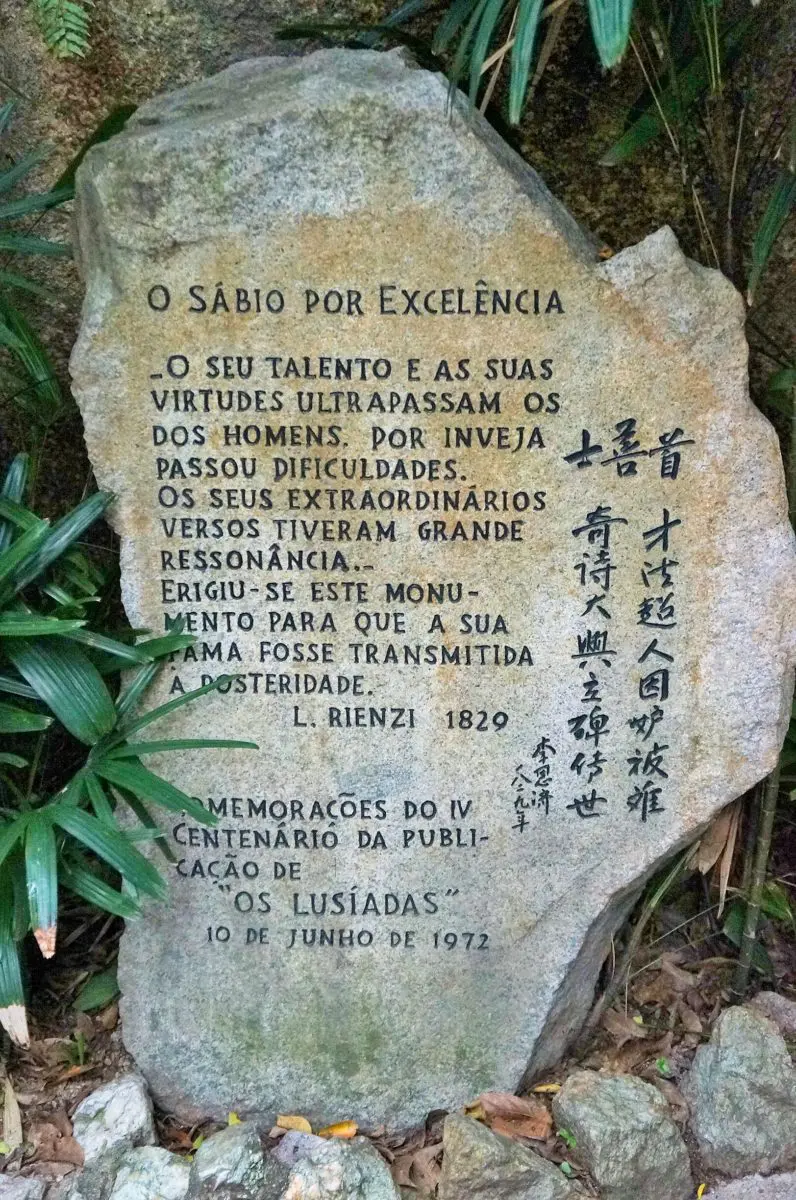 O SÁBIO POR EXCELÊNCIA
_O SEU TALENTO E AS SUAS
VIRTUDES ULTRAPASSAM OS
DOS HOMENS. POR INVEJA
PASSOU DIFICULDADES.
OS SEUS EXTRAORDINÁRIOS
VERSOS TIVERAM GRANDE
RESSONÂNCIA._
ERIGIU-SE ESTE MONU-
MENTO PARA QUE A SUA
FAMA FOSSE TRANSMITIDA
A POSTERIDADE.
L. RIENZI 1829
COMEMORAÇÕES DO IV
CENTENÁRIO DA PUBLI-
CAÇÃO DE
"OS LUSÍADAS"
10 DE JUNHO DE 1972
首善士
才德超人因妒被难
奇诗大興立碑传世
李恩济
八二九年